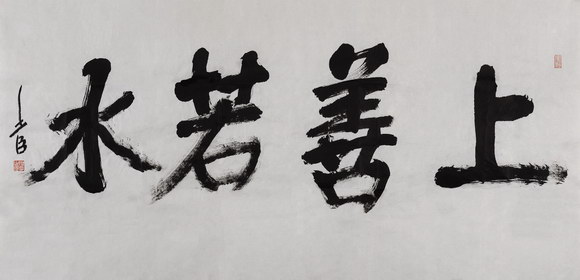 上善若水